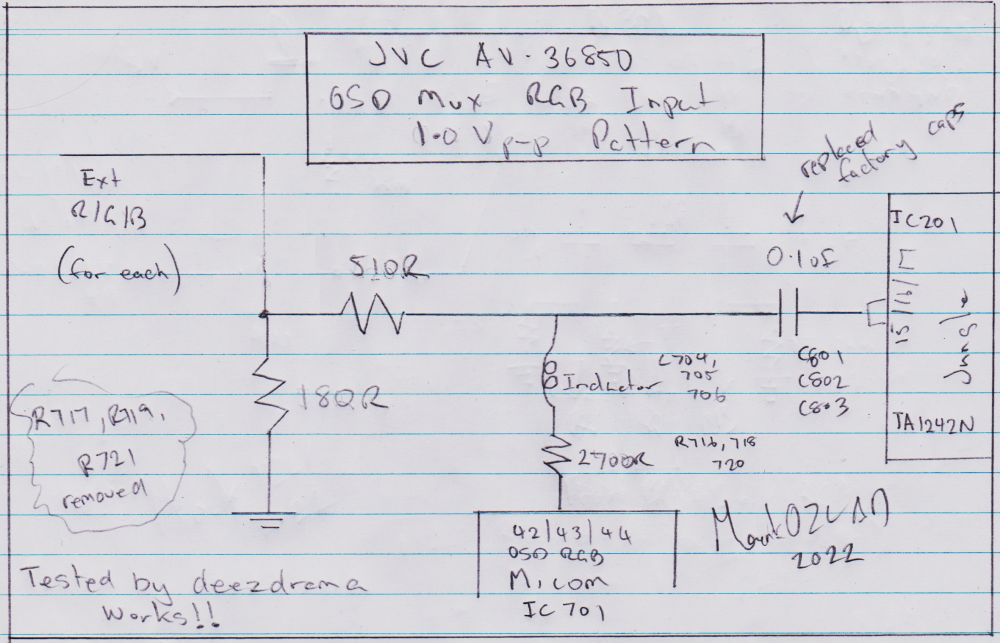 JVC AV-36850
OSD Mux RGB Input
1.0 Vp-p Pattern
replaced
factory caps
Ext
R/G/B
(for each)
510R
0.1uF
IC201
15/16/17
Jungle
TA1242N
180R
Inductor
L704,
705
706
C801
C802
C803
R717, R719,
R721
removed
2700R
R716, 718
720
42/43/44
OSD RGB
Micom
IC701
MarkOZLAD
2022
Tested by deezdrama
Works!!